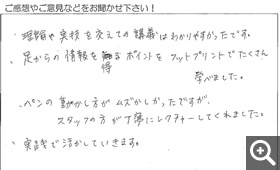 ご感想やご意見などをお聞かせ下さい！
・理論や実技を交えての講義はわかりやすかったです。
・足からの情報を得るポイントをフットプリントでたくさん
学べました。
・ペンの動かし方がムズかしかったですが、
スタッフの方が丁寧にレクチャーしてくれました。
・実践で活かしていきます。